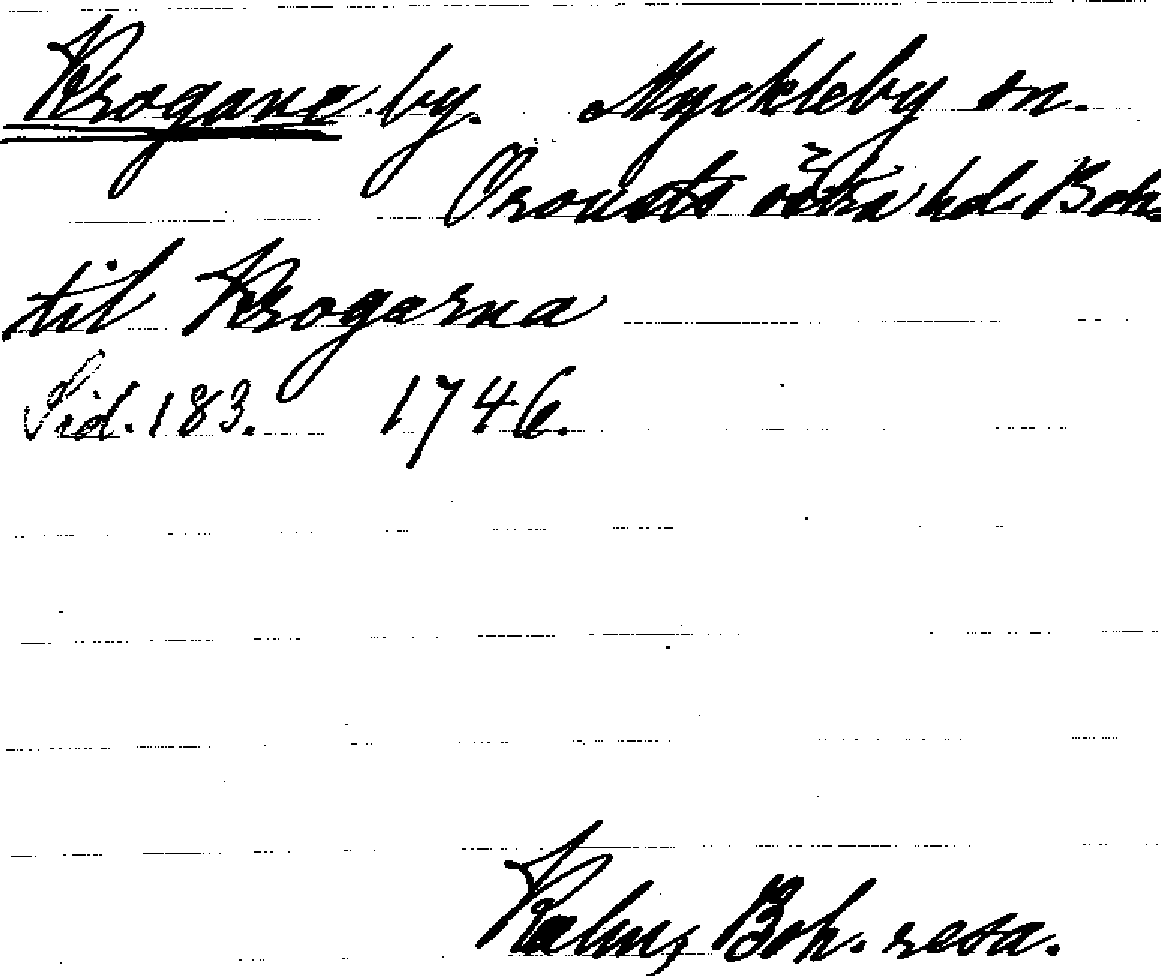 Krogane by. Myckleby sn.
Orousts östra hd. Boh.
til Krogarna
Sid. 183. 1746.
Kalm, Boh. resa.